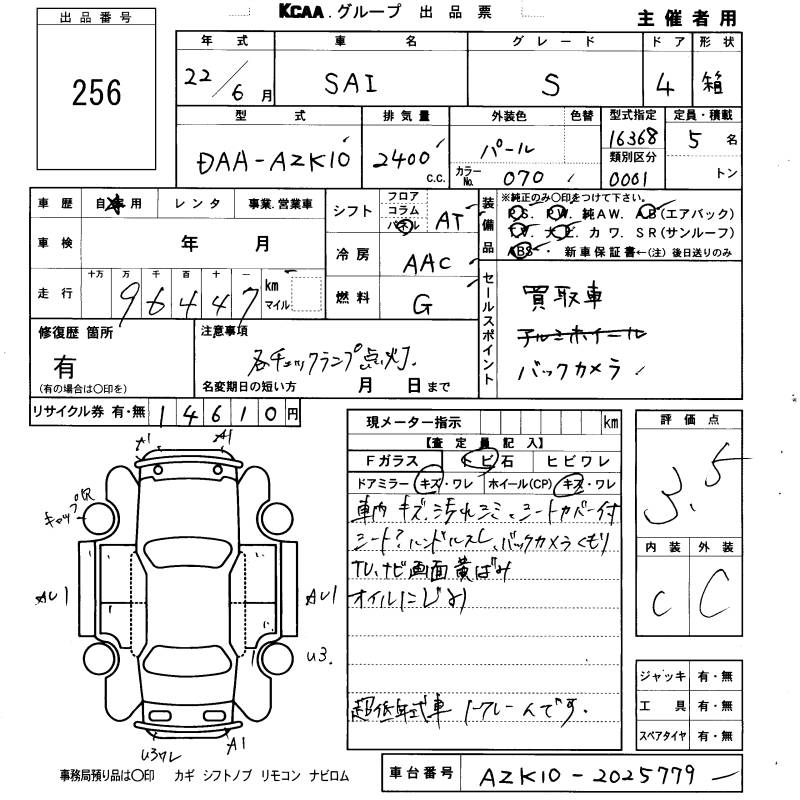 出品番号
256
KCAA.グループ 出品票
主催者用
年式 車名 グレード ドア 形状
22/6月 SAI S 4 箱
型式 排気量 外装色 色替 型式指定 定員・積載
DAA-AZK10 2400 c.c. パール 16368 5名
カラーNo. 070 類別区分 0001 トン
車歴 自家用 レンタ 事業.営業車
車検 年 月
走行 十万 万 千 百 十 一 km マイル
96447
シフト フロア コラム パネル AT
冷房 AAC
燃料 G
装備品 ※純正のみ○印をつけて下さい。
P.S. P.W. 純AW. AB(エアバック)
T.V. カワ. SR(サンルーフ)
ABS. 新車保証書←(注) 後日送りのみ
修復歴 箇所
有
(有の場合は○印を)
注意事項
各チェックランプ点灯.
名変期日の短い方 月 日まで
セールスポイント
買取車
アルミホイール
バックカメラ
リサイクル券 有・無 14610円
現メーター指示 km
【査定員記入】
Fガラス トビ石 ヒビワレ
ドアミラー キズ・ワレ ホイール(CP) キズ・ワレ
車内 キズ.汚れシミ、シートカバー付
シート? ハンドルスレ、バックカメラくもり
TV、ナビ画面黄ばみ
オイルにじみ
超低年式車 ノークレームです.
評価点
3.5
内装 外装
C C
ジャッキ 有・無
工具 有・無
スペアタイヤ 有・無
A1 A1
キャップ
AU1 AU1
U3.
U3ワレ A1
事務局預り品は○印 カギ シフトノブ リモコン ナビロム
車台番号 AZK10-2025779